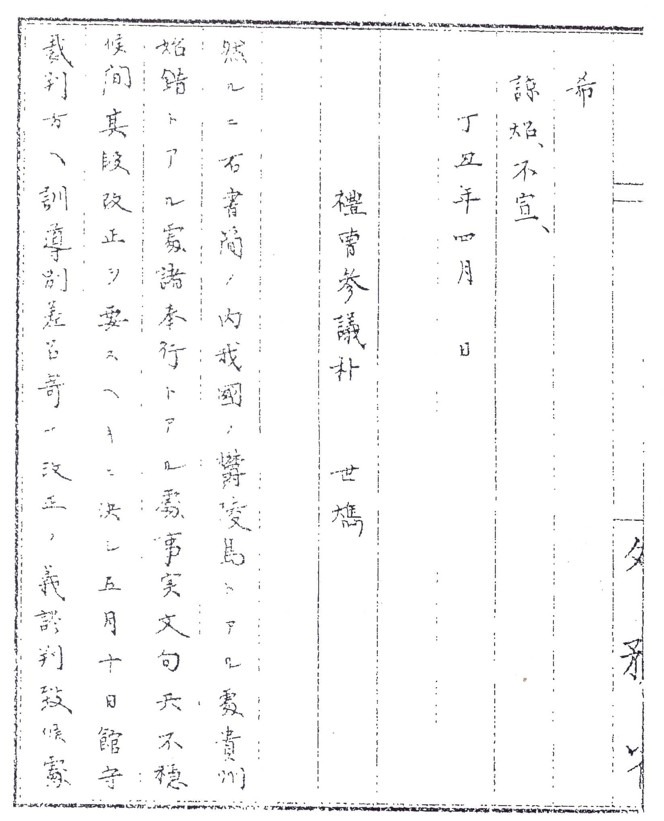 希
諒炤、不宣、
丁丑年四月　日
禮曹参議朴　世𤎱
然ルニ右書簡ノ内我國ノ欝陵島トアル處貴州
始錯トアル處諸奉行トアル處事実文句共不穏
候間其段改正ヲ要スヘキニ決シ五月十日館守
裁判方ヘ訓導別差召寄セ改正ノ義談判致候處